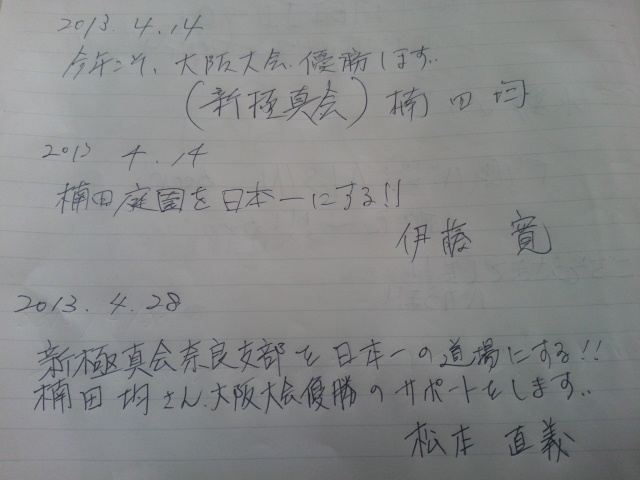 2013. 4. 14
今年こそ、大阪大会優勝します。
(新極真会)楠田均
2013 4. 14
楠田庭園を日本一にする!!
伊藤 寛
2013. 4. 28
新極真会奈良支部を日本一の道場にする!!
楠田均さん、大阪大会優勝のサポートをします。
松本 直義